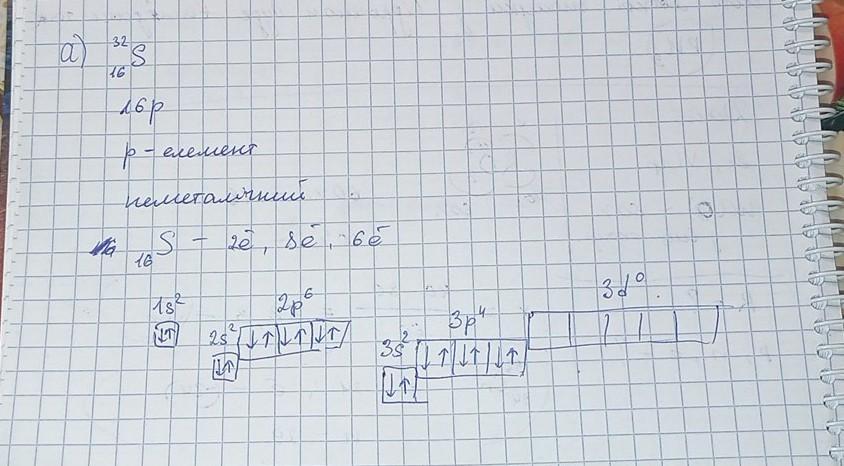 а) ³²₁₆S
16p
p - елемент
неметалічний
₁₆S - 2ē, 8ē, 6ē
1s² 2s² 2p⁶ 3s² 3p⁴ 3d⁰
↓↑ ↓↑ ↓↑ ↓↑ ↓↑ ↓↑ ↓↑ ↓↑ ↓↑